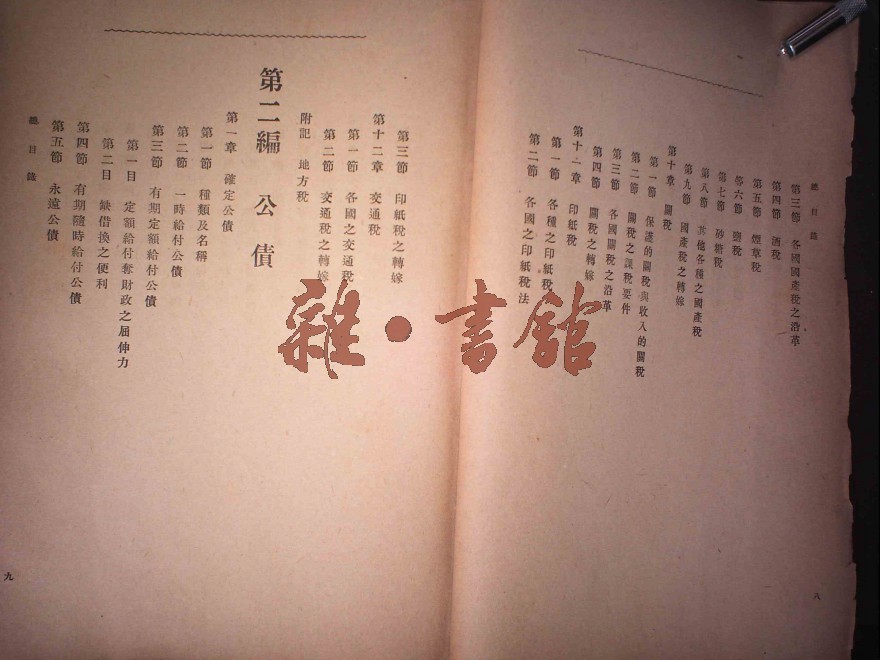 總目錄
第三節 各國國產稅之沿革
第四節 酒稅
第五節 煙草稅
第六節 鹽稅
第七節 砂糖稅
第八節 其他各種之國產稅
第九節 國產稅之轉嫁
第十章 關稅
第一節 保護的關稅與收入的關稅
第二節 關稅之課稅要件
第三節 各國關稅之沿革
第四節 關稅之轉嫁
第十一章 印紙稅
第一節 各種之印紙稅
第二節 各國之印紙稅法
八
第三節 印紙稅之轉嫁
第十二章 交通稅
第一節 各國之交通稅
第二節 交通稅之轉嫁
附記 地方稅
第二編 公債
第一章 確定公債
第一節 種類及名稱
第二節 一時給付公債
第三節 有期定額給付公債
第一目 定額給付奪財政之屈伸力
第二目 缺借換之便利
第四節 有期隨時給付公債
第五節 永遠公債
總目錄
九
雜·書館